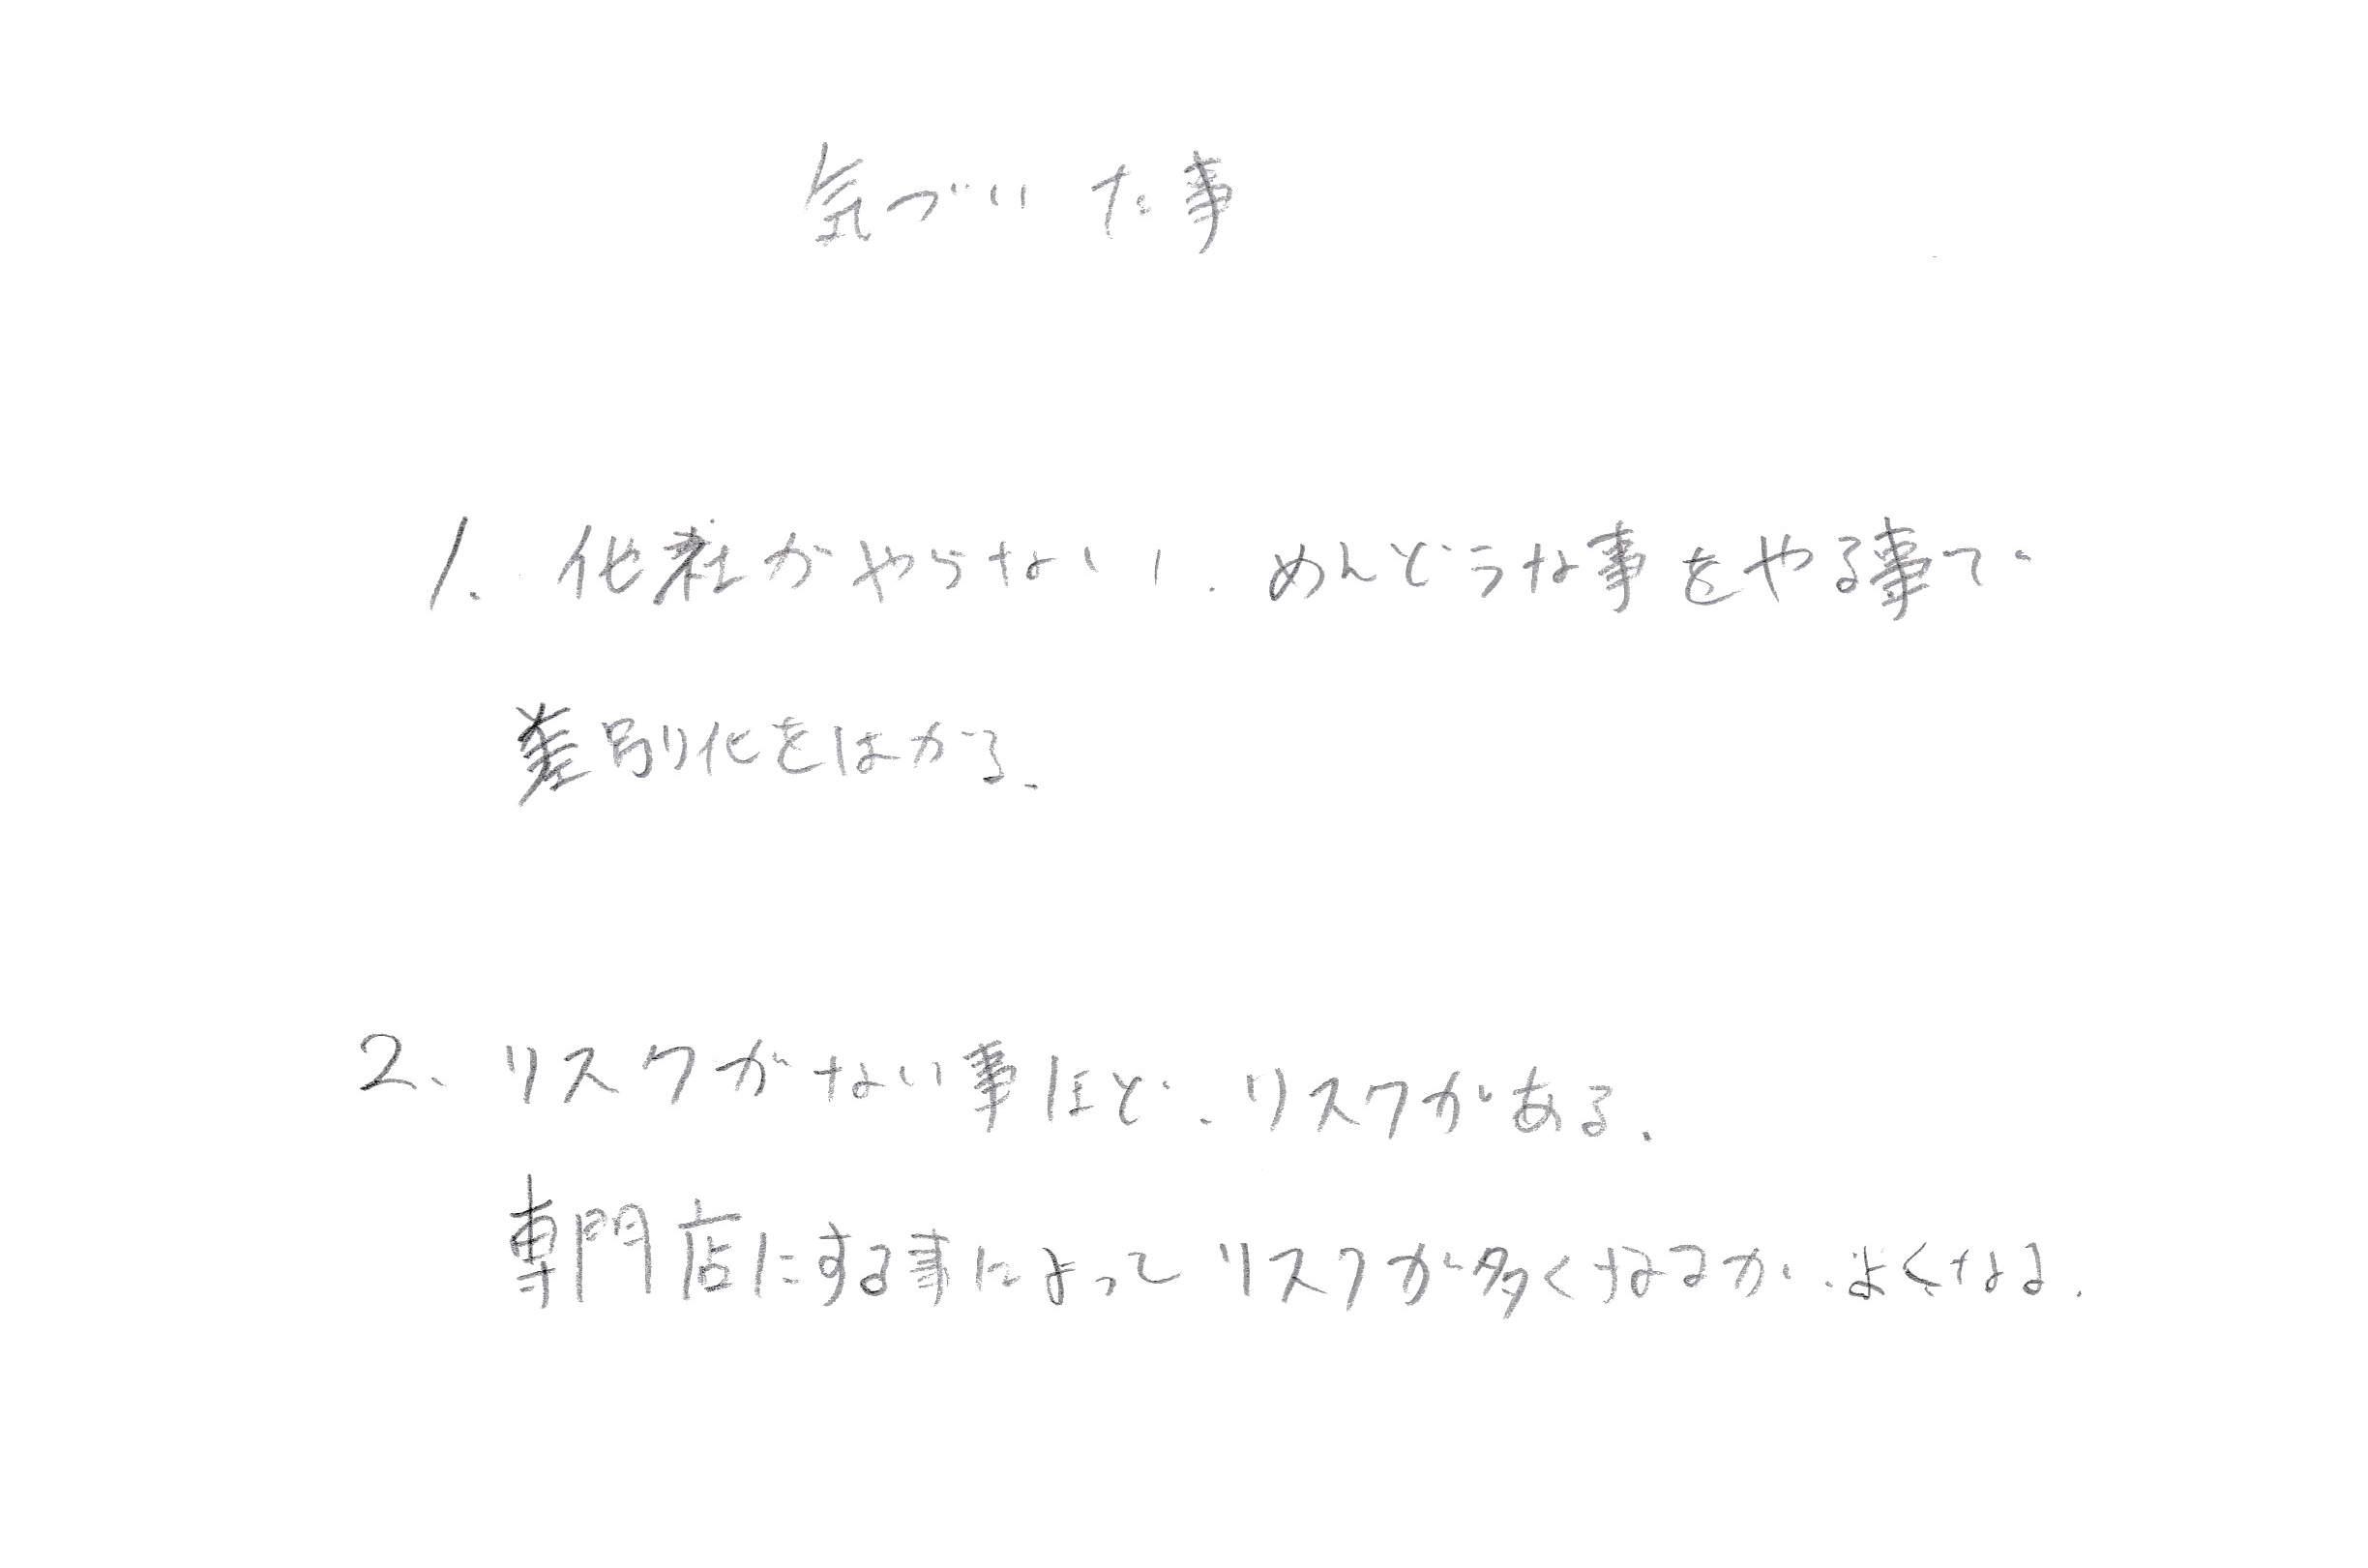 気づいた事
1. 他社がやらない、めんどうな事をやる事で
差別化をはかる.
2. リスクがない事ほど、リスクがある.
専門店にする事によってリスクが多くなるが、よくなる.